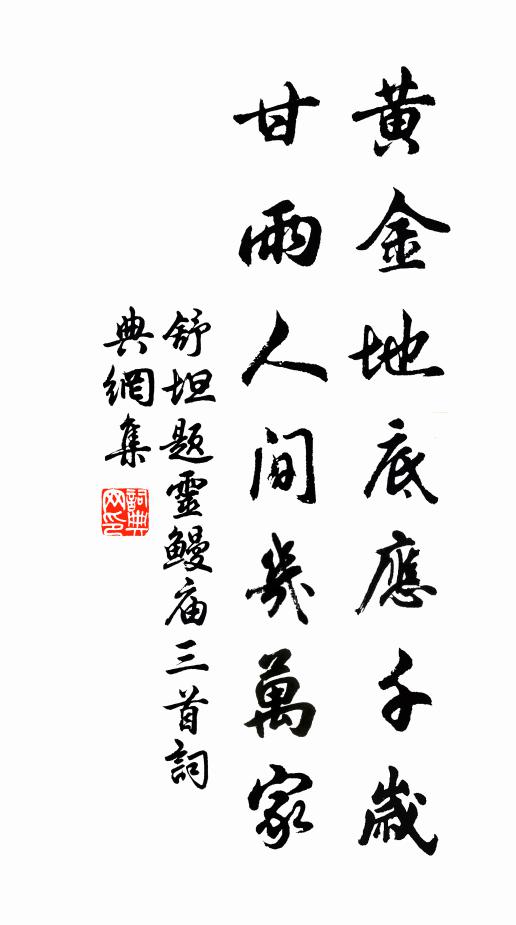 黃金地底應千歲
甘雨人間幾萬家
舒坦題靈鰻庙三首詞
典網集
詞典
网印